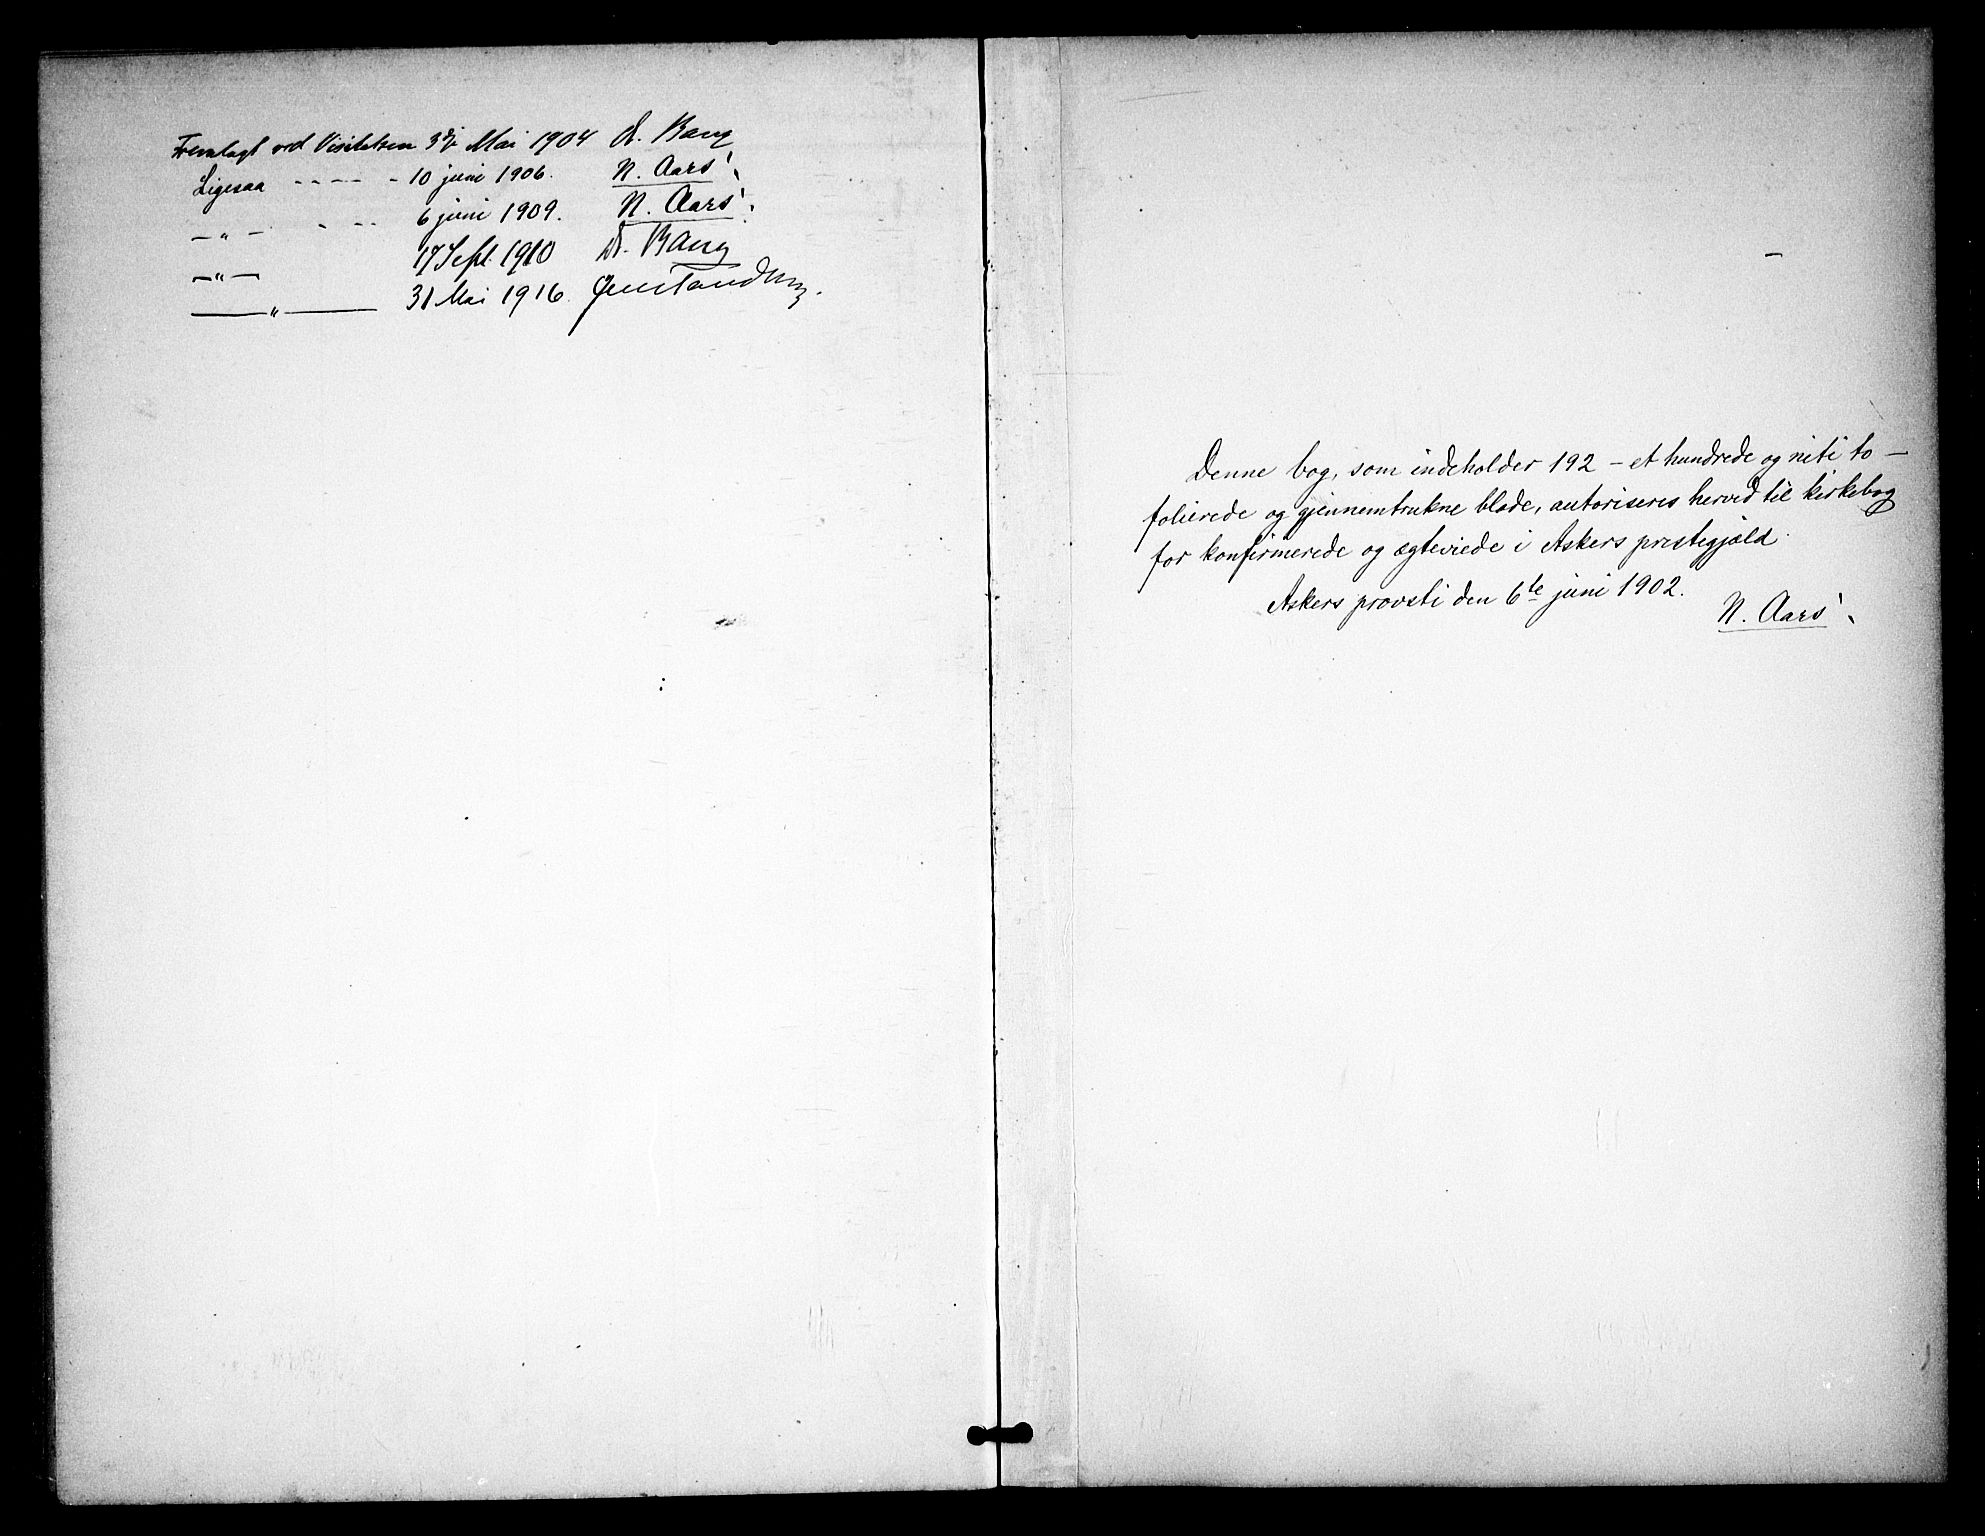 Fremlagt ved Visitatsen 3die Mai 1904 A. Bang
Ligesaa - - - - - 10 juni 1906. N. Aars
— " — - - - - 6 juni 1909. N. Aars
— " — 17 Sept. 1910 A. Bang
— " — 31 Mai 1916. Jens Tandberg.
Denne bog, som indeholder 192 – et hundrede og niti to –
folierede og gjennemtrukne blade, autoriseres herved til kirkebog
for konfirmerede og ægteviede i Askers prestegjæld.
Askers provsti den 6te juni 1902.
N. Aars